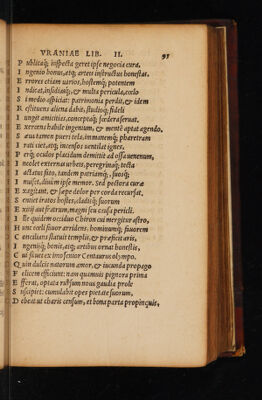 VRANIAE LIB. II. 91
P ublicaq; inspecta geret ipse negocia cura.
I ngenio bonus, atq; artem instructus honestas.
E rrores etiam uarios, hostemq; potentem
I ndicat, insidiasq;, & multa pericula, cœlo
S i medio aspiciat: patrimonia perdit, & idem
R estituens aliena dabit, studioq; fideli
I ungit amicitias, conceptaq; fœdera seruat.
E xercens habile ingenium, & mentē aptat agendo.
S aua tamen pueri tela, inmatemq; pharetram
I rati uiet, atq; incensos uentilat ignes.
P erq; oculos placidum demittit ad ossa uenenum,
I ncolet externas urbeis, peregrinaq; tecta
I actatus fito, tandem patriamq;, suosq;
I nuiset, diuum ipse memor. Sed pectora cura
E xagitant, & sæpe dolor per corda recursat.
S entiet iratos hosteis, cladisq; suorum
E xitij aut fratrum, magni seu cæsa penicli.
I lle quidem occiduo Chiron cui mergitur astro,
I unt cœli fauor arridens, hominumq; fauorem
C oncilians statuit templis, & præficit aris,
I ngenijq; bonis, atq; artibus ornat honestis,
C ui fiuet ex imo senior Centaurus olympo.
Q uin dulcis natorum amor, & iucunda propago
F elicem efficient: nam quamuis pignora prima
E fferat, optata rursum noua gaudia prole
S uscipiet: cumulabit opes pietate suorum,
D ebeat ut charis censum, et bona parta propinquis,